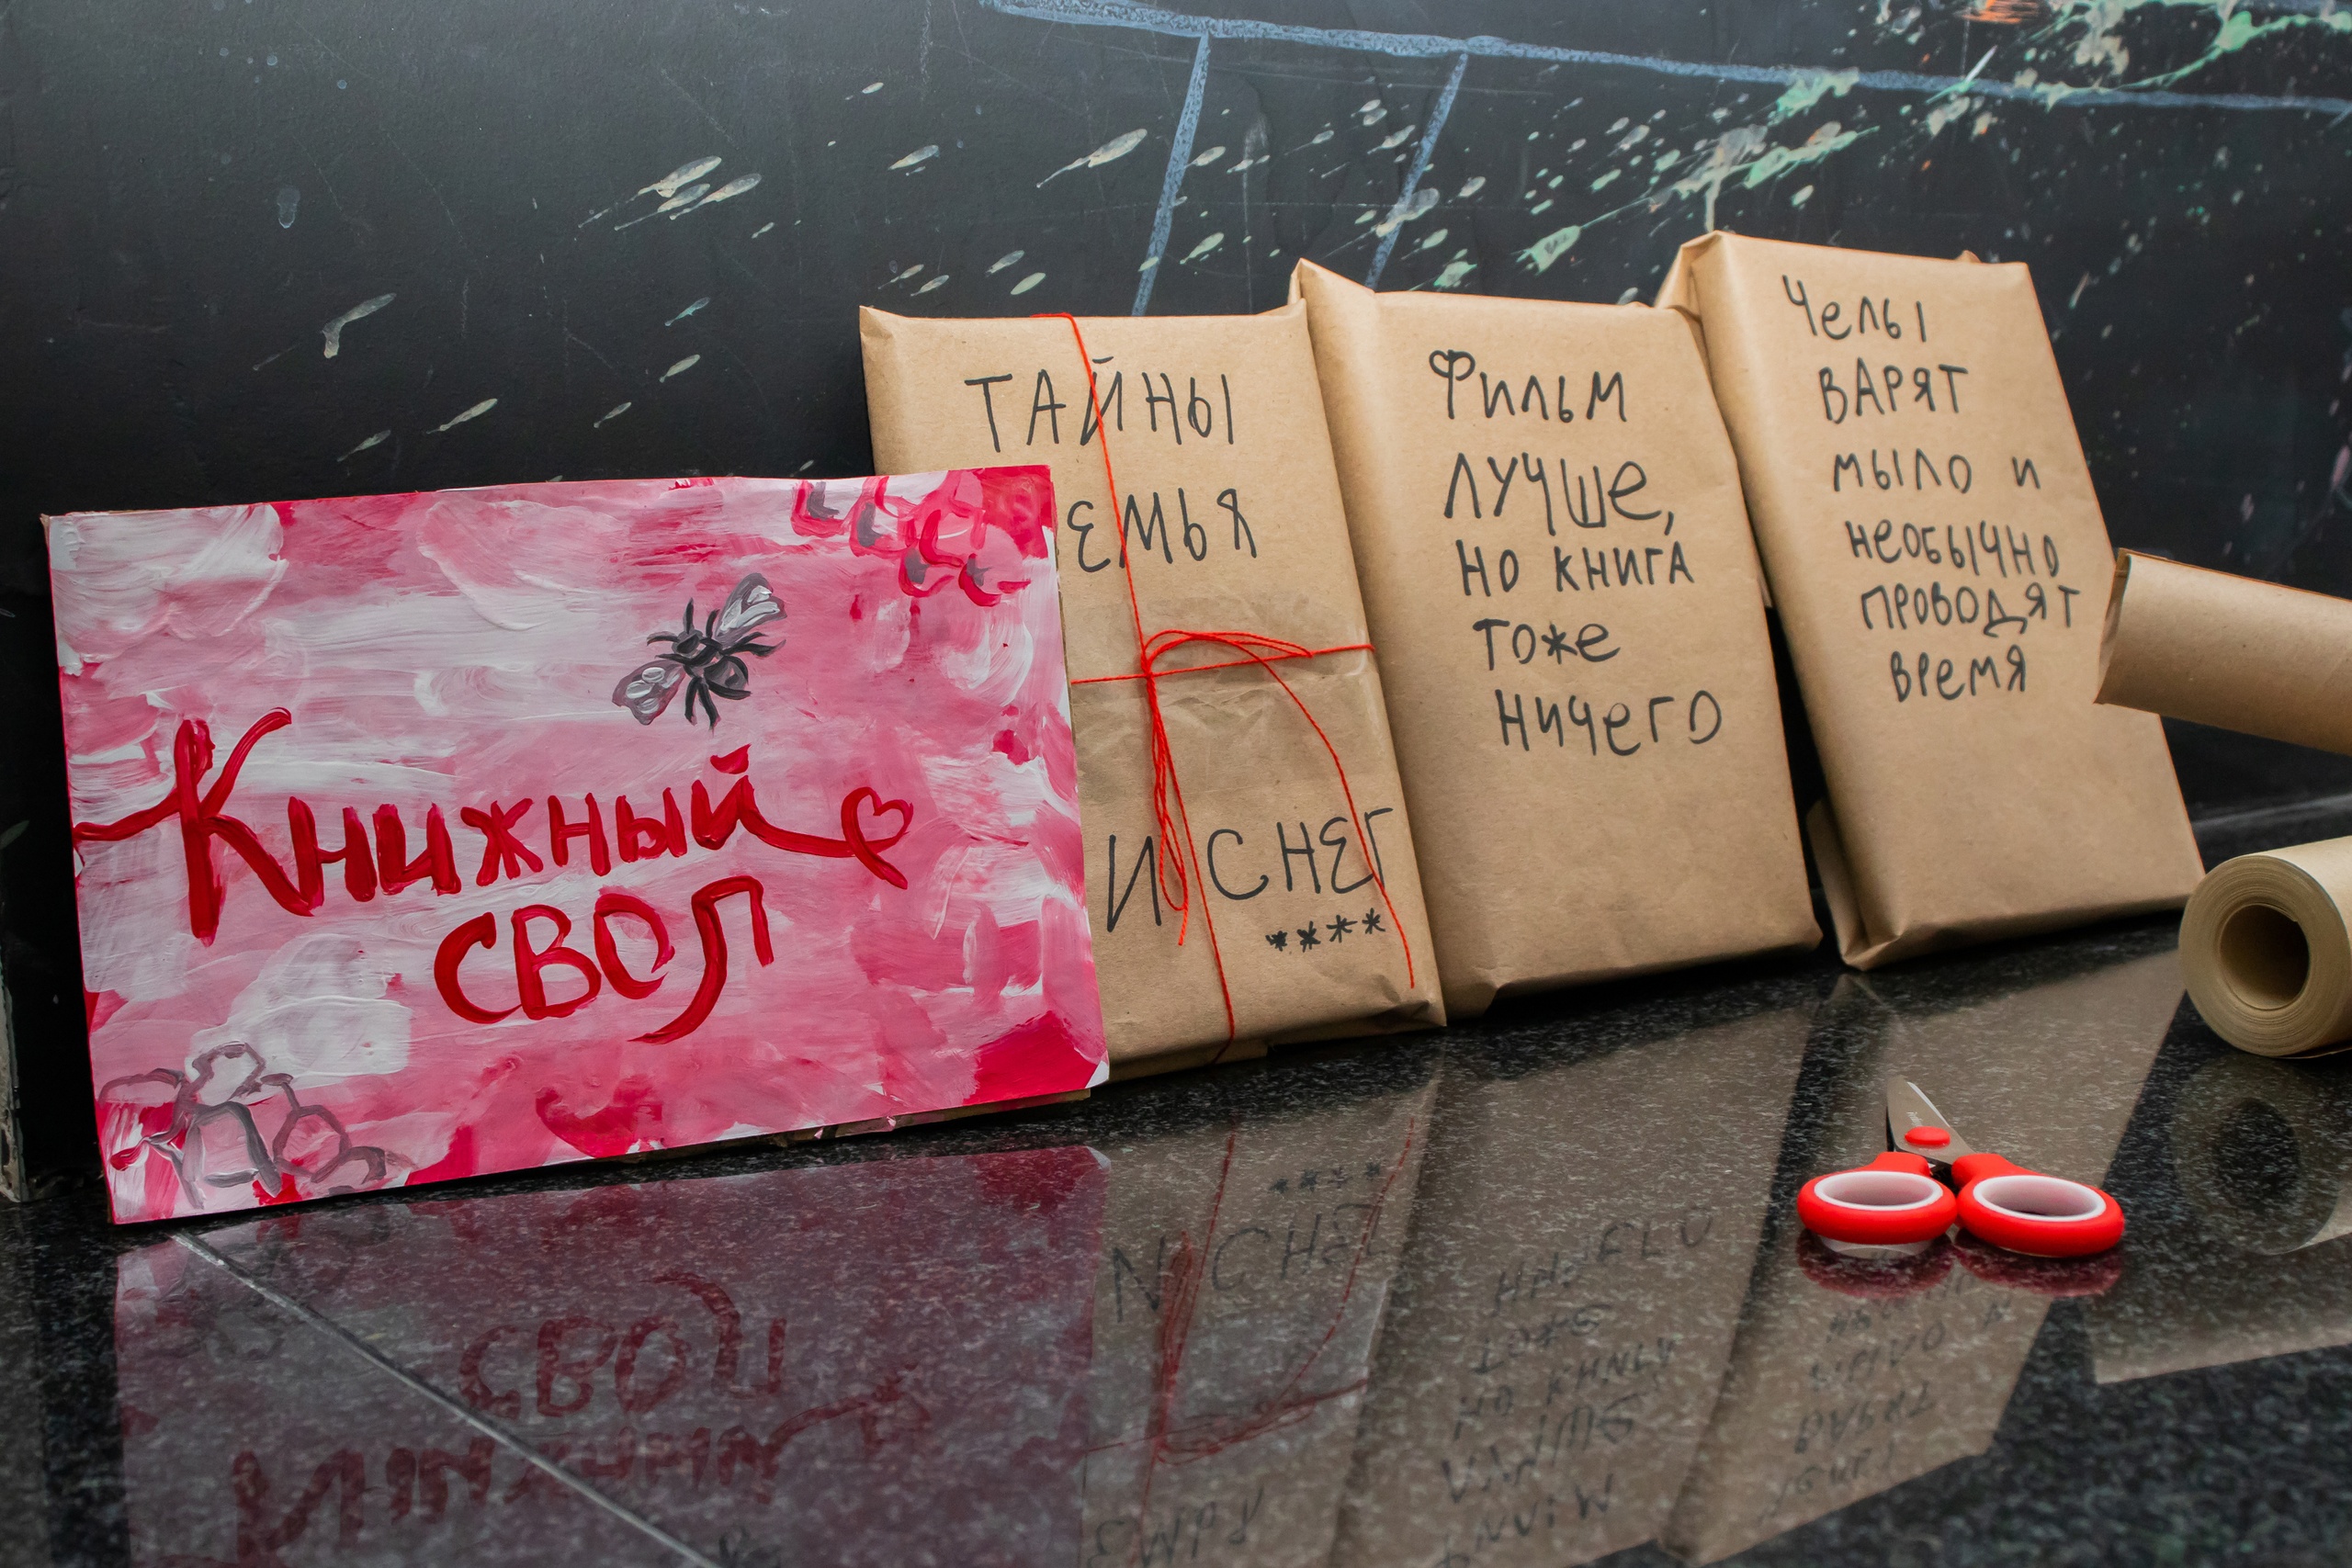 Книжный
свол
ТАЙНЫ
ЕМЬЯ
И СНЕГ
****
Фильм
лучше,
но книга
тоже
ничего
Челы
варят
мыло и
необычно
проводят
время